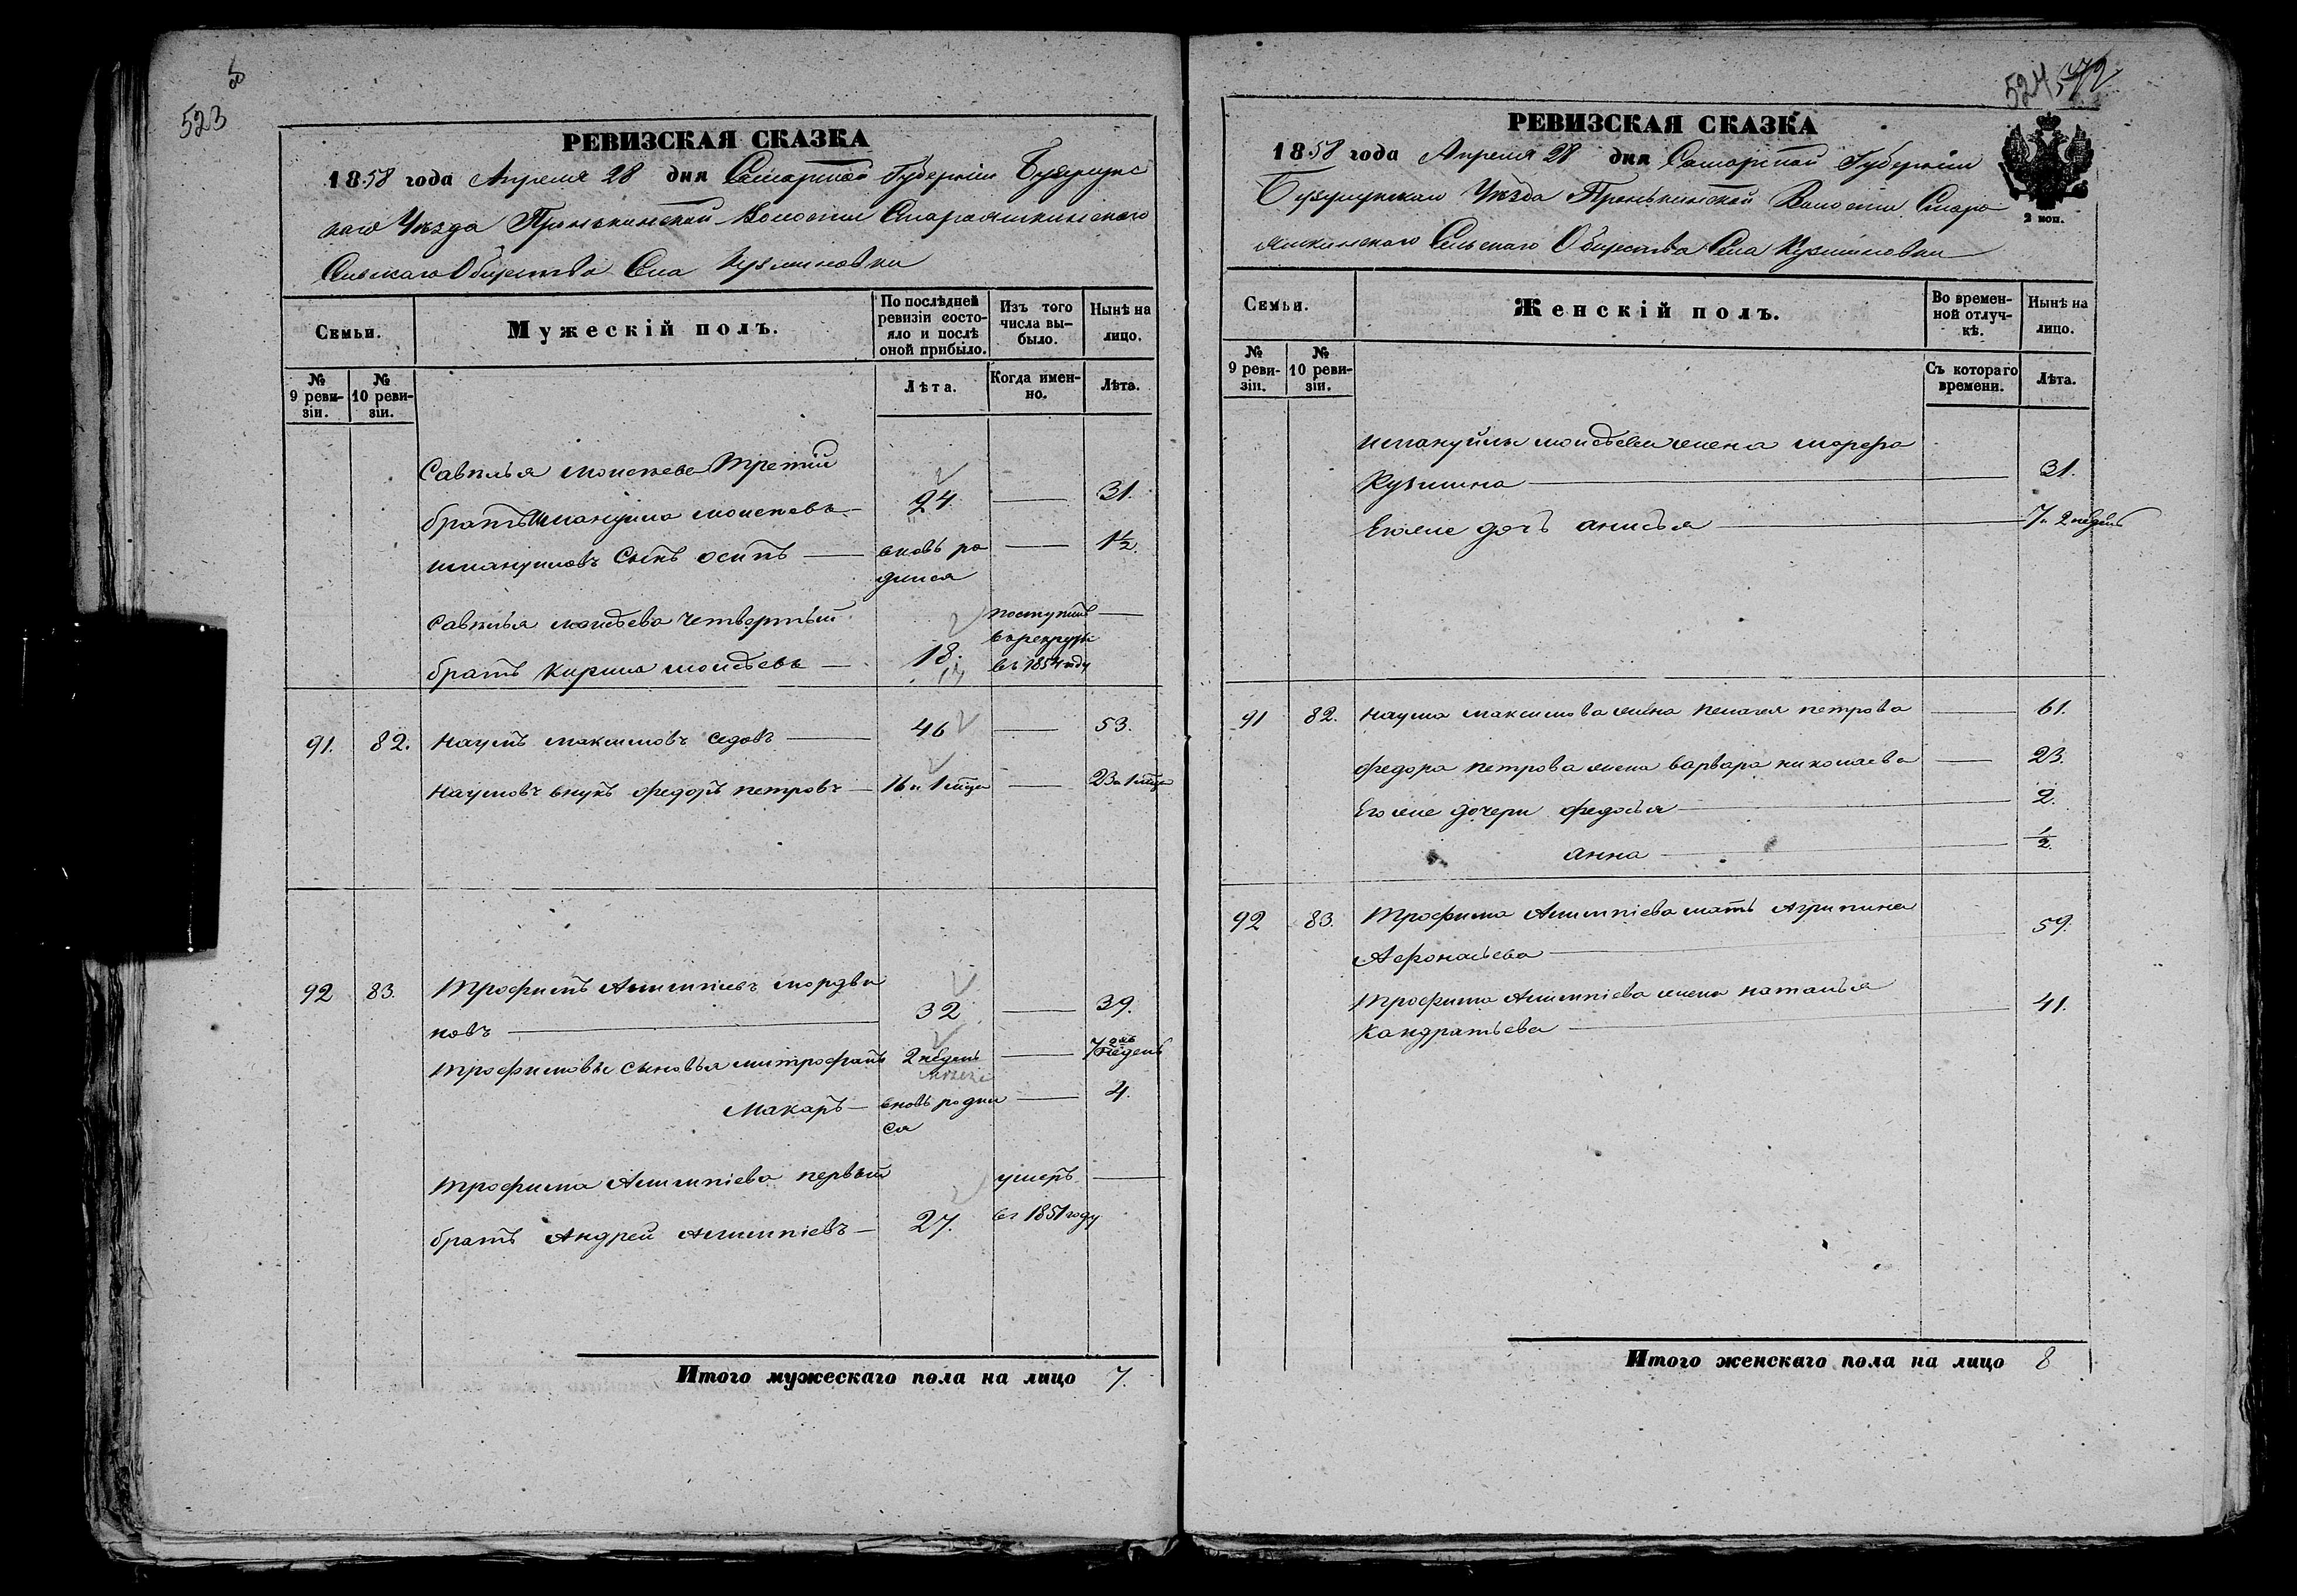 523
РЕВИЗСКАЯ СКАЗКА
1858 года Апреля 28 дня Самарской Губернiи Бузулукс
каго Уѣзда Пронькинской Волости Старояшкинскаго
Сельскаго Общества Села Кузминовки
Семьи.
Мужескiй полъ.
По послѣдней ревизiи состояло и послѣ оной прибыло.
Изъ того числа выбыло.
Нынѣ на лицо.
№ 9 ревизiи.
№ 10 ревизiи.
Лѣта.
Когда именно.
Лѣта.
Савелья Моисеева Третiй
братъ Имануила Моисеевъ 24 31.
Имануиловъ Сынъ осипъ вновь ро 1½.
дился
Савелья моисѣева четвертый поступилъ
в рекруты
братъ Кирила моисѣевъ 18. въ 1854 году
91. 82. Наумъ максимовъ седовъ 46 53.
Наумовъ внукъ федоръ петровъ 16 и 1 мѣца 23 и 1 мѣца
92 83. Трофимъ Алимпiевъ мордви
новъ 32 39.
Трофимовы сыновья митрофанъ 2 недель 7 2 недель
Макаръ вновь роди 4.
ся
Трофима Алимпiева первый умеръ
братъ Андрей Алимпiевъ 27. въ 1851 году
Итого мужескаго пола на лицо 7.
524 572
РЕВИЗСКАЯ СКАЗКА
1858 года Апреля 28 дня Самарской Губернiи
Бузулукскаго Уѣзда Пронькинской Волости Старо
яшкинскаго Сельскаго Общества Села Кузминовки
2 коп.
Семьи.
Женскiй полъ.
Во временной отлучкѣ.
Нынѣ на лицо.
№ 9 ревизiи.
№ 10 ревизiи.
Съ котораго времени.
Лѣта.
Имануила моисѣева жена марфа
Кузмина 31.
Его же дочь анисья 7 и 2 недель
91 82. Наума максимова жена пелагея петрова 61.
федора петрова жена варвара николаева 23.
Его же дочери федосья 2.
анна ½.
92 83. Трофима Алимпiева мать Агрипина
Афонасьева 59.
Трофима Алимпiева жена наталья
Кандратьева 41.
Итого женскаго пола на лицо 8